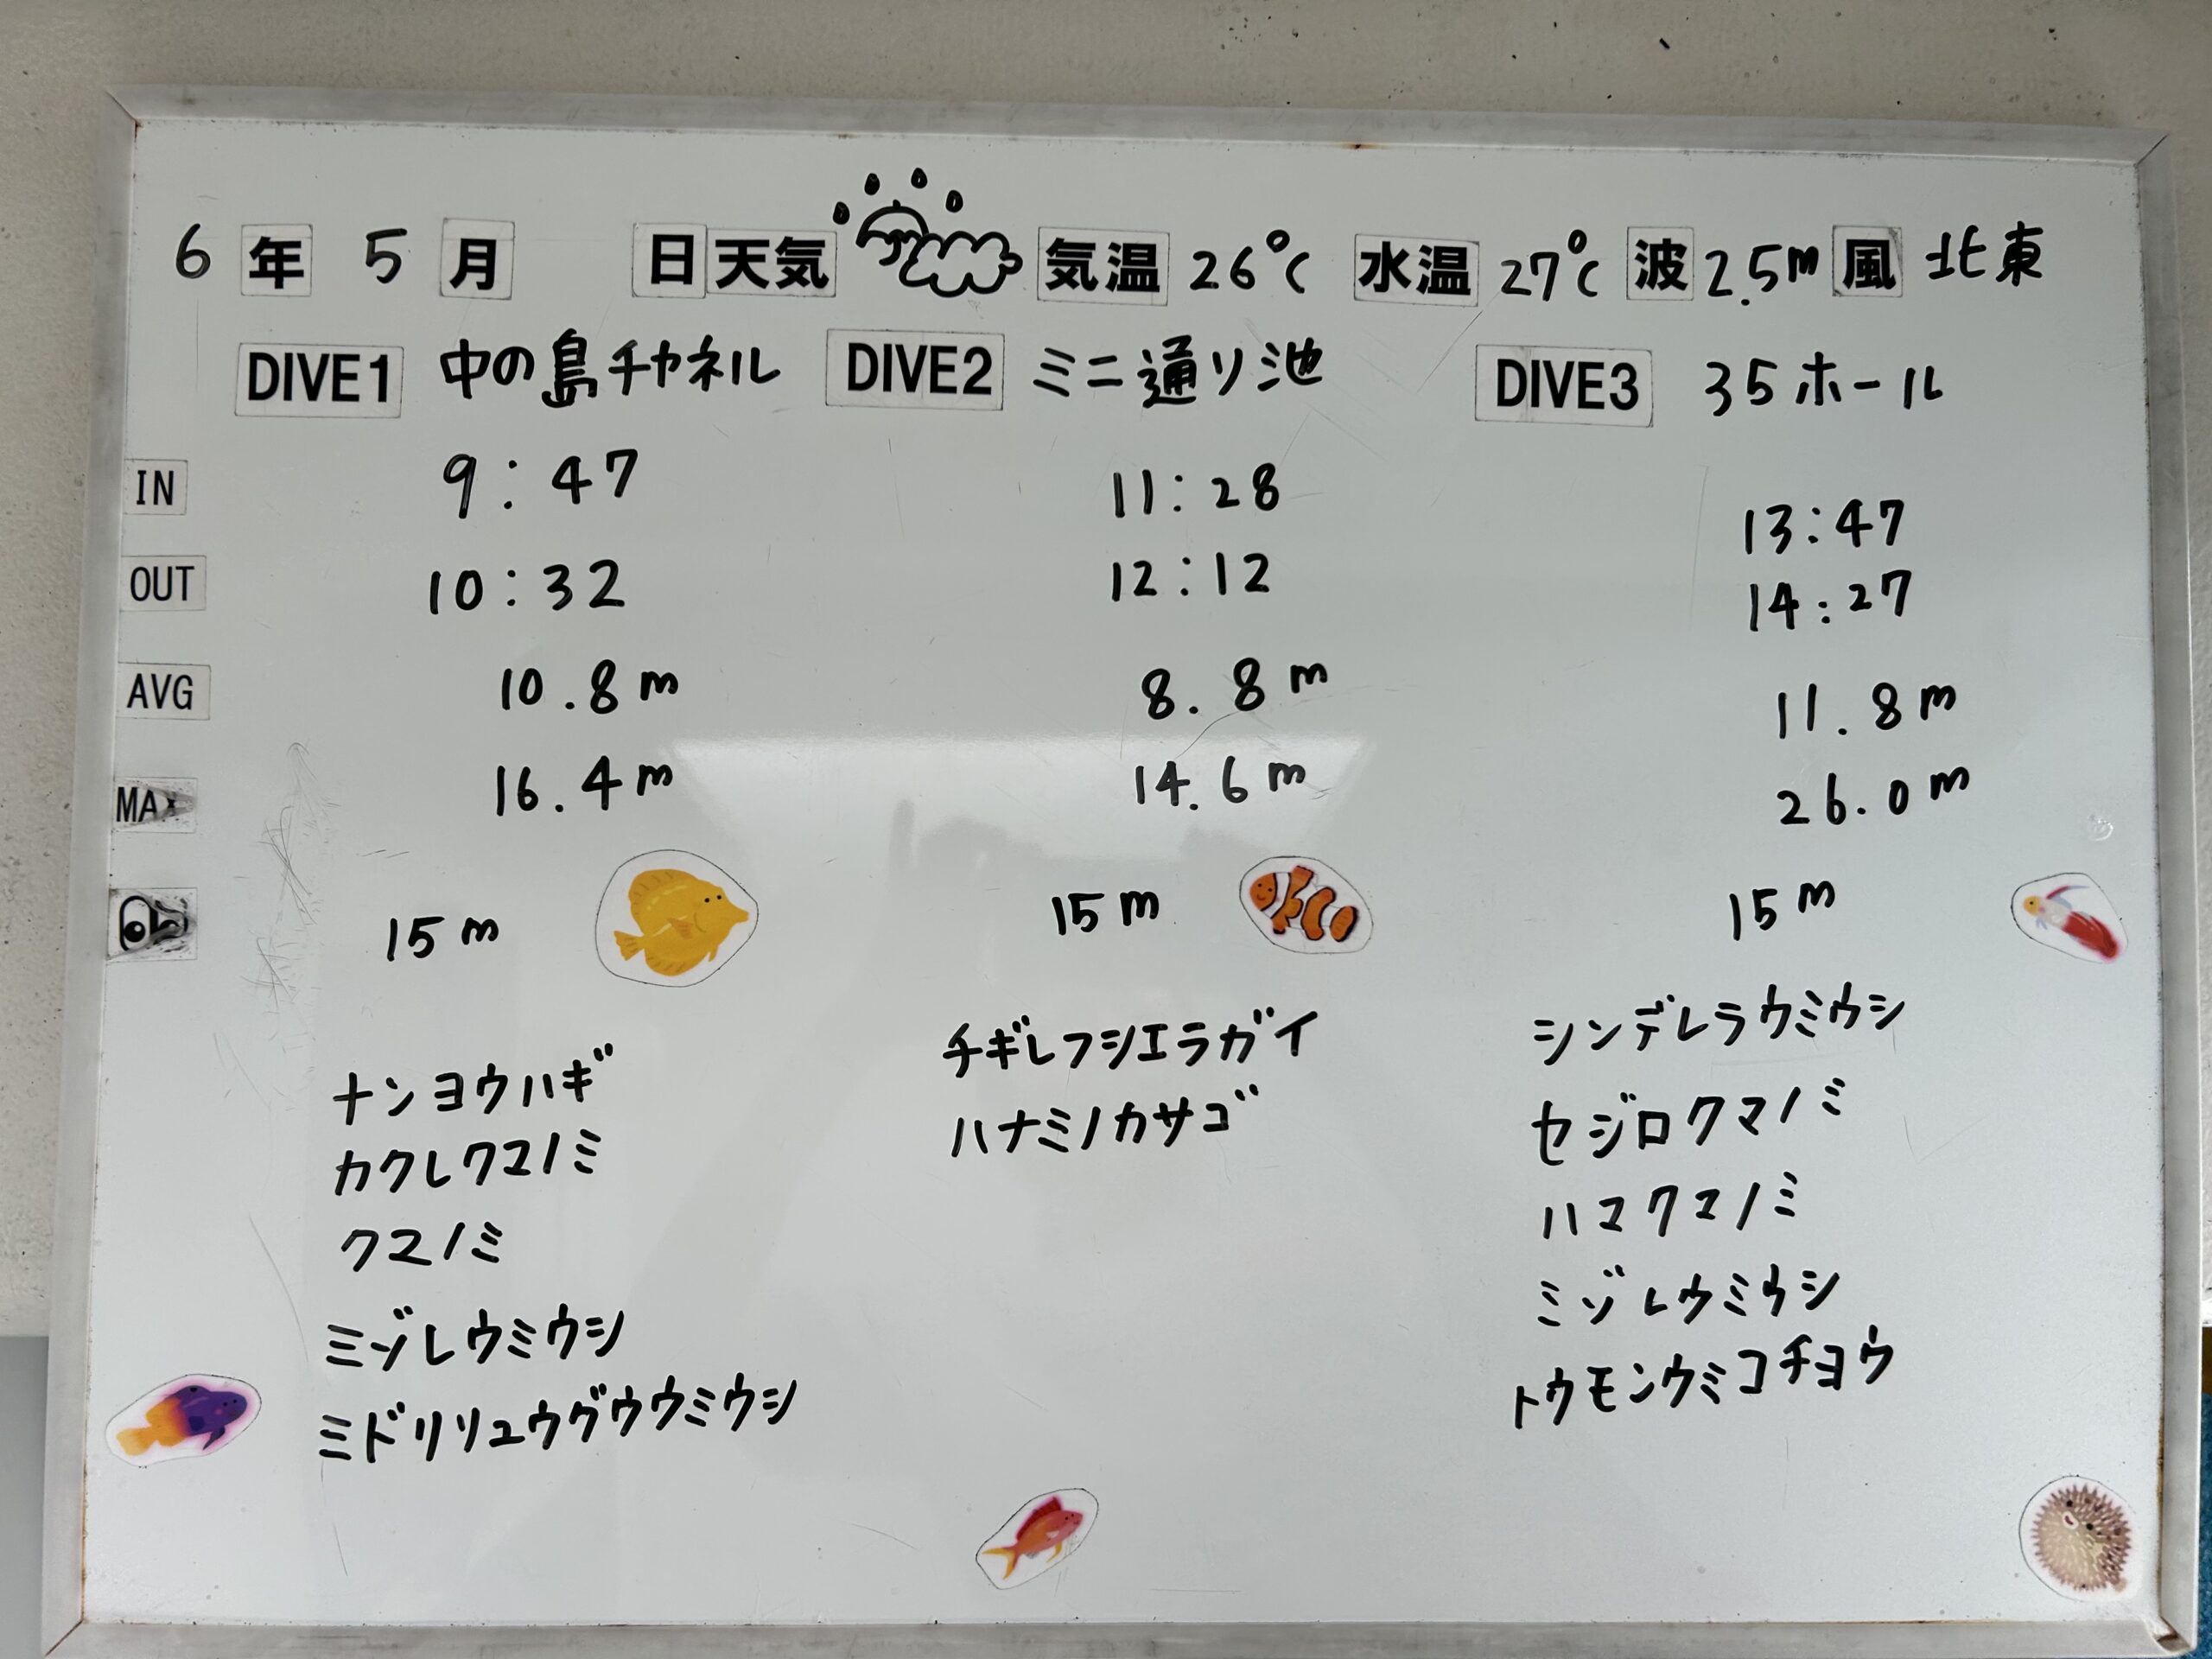 6年 5月 日 天気 気温 26℃ 水温 27℃ 波 2.5m 風 北東
DIVE1 中の島チャネル DIVE2 ミニ通り池 DIVE3 35ホール
IN 9:47 11:28 13:47
OUT 10:32 12:12 14:27
AVG 10.8m 8.8m 11.8m
MAX 16.4m 14.6m 26.0m
15m 15m 15m
ナンヨウハギ チギレフシエラガイ シンデレラウミウシ
カクレクマノミ ハナミノカサゴ セジロクマノミ
クマノミ ハマクマノミ
ミゾレウミウシ ミゾレウミウシ
ミドリリュウグウウミウシ トウモンウミコチョウ